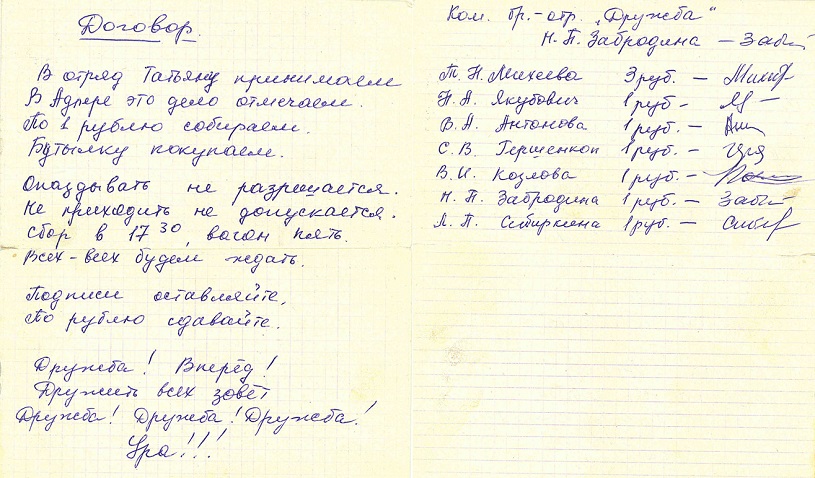 Договор.
В отряд Татьяну принимаем
В Адлере это дело отмечаем.
По 1 рублю собираем.
Бутылку покупаем.
Опаздывать не разрешается.
Не приходить не допускается.
Сбор в 17 30, вагон пять.
Всех-всех будем ждать.
Подписи оставляйте,
По рублю сдавайте.
Дружба! Вперёд!
Дружить всех зовёт
Дружба! Дружба! Дружба!
Ура!!!
Ком. бр.-отр. „Дружба“
Н. П. Забродина –
Т. Н. Михеева 3 руб. –
Н. А. Якубович 1 руб –
В. А. Антонова 1 руб. –
С. В. Гершенкоп 1 руб. –
В. И. Козлова 1 руб. –
Н. П. Забродина 1 руб. –
Л. П. Сибиркина 1 руб. –